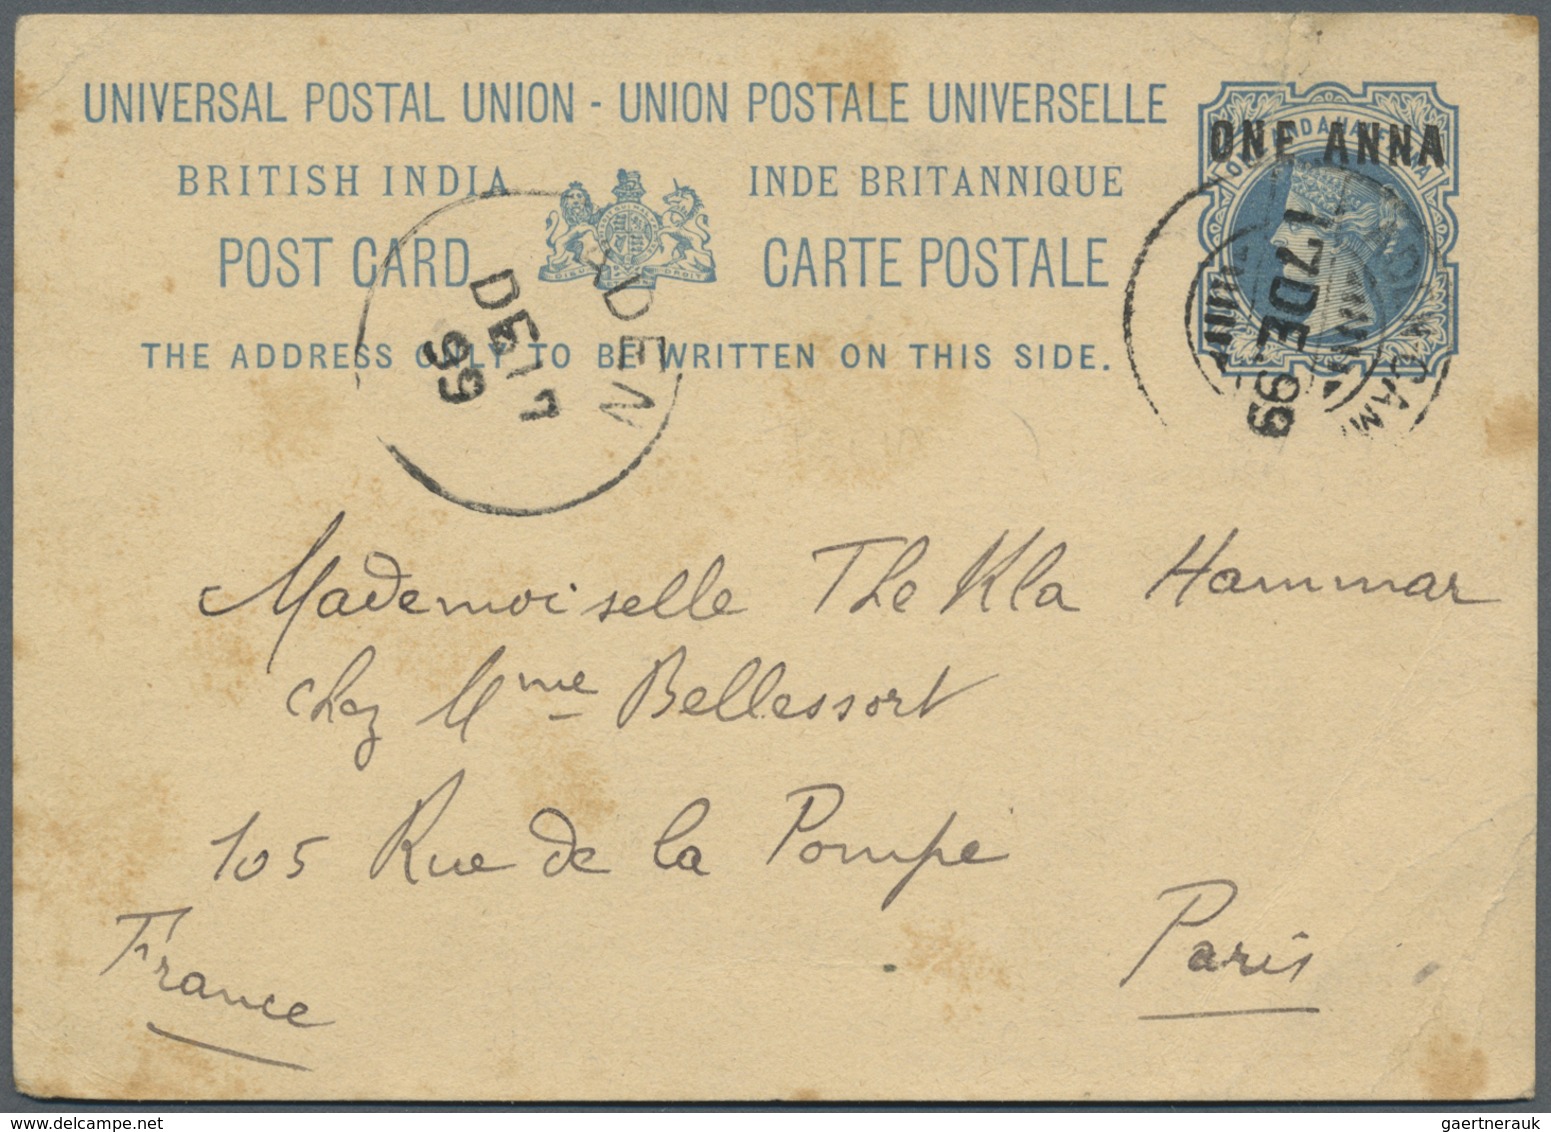 UNIVERSAL POSTAL UNION - UNION POSTALE UNIVERSELLE
BRITISH INDIA INDE BRITANNIQUE
POST CARD CARTE POSTALE
THE ADDRESS ONLY TO BE WRITTEN ON THIS SIDE.
ONE ANNA
ADEN
DE 17
99
17 DE 99
Mademoiselle Thekla Hammar
chez Mme Bellessort
105 Rue de la Pompe
Paris
France
gaertnerauk @ delcampe.net